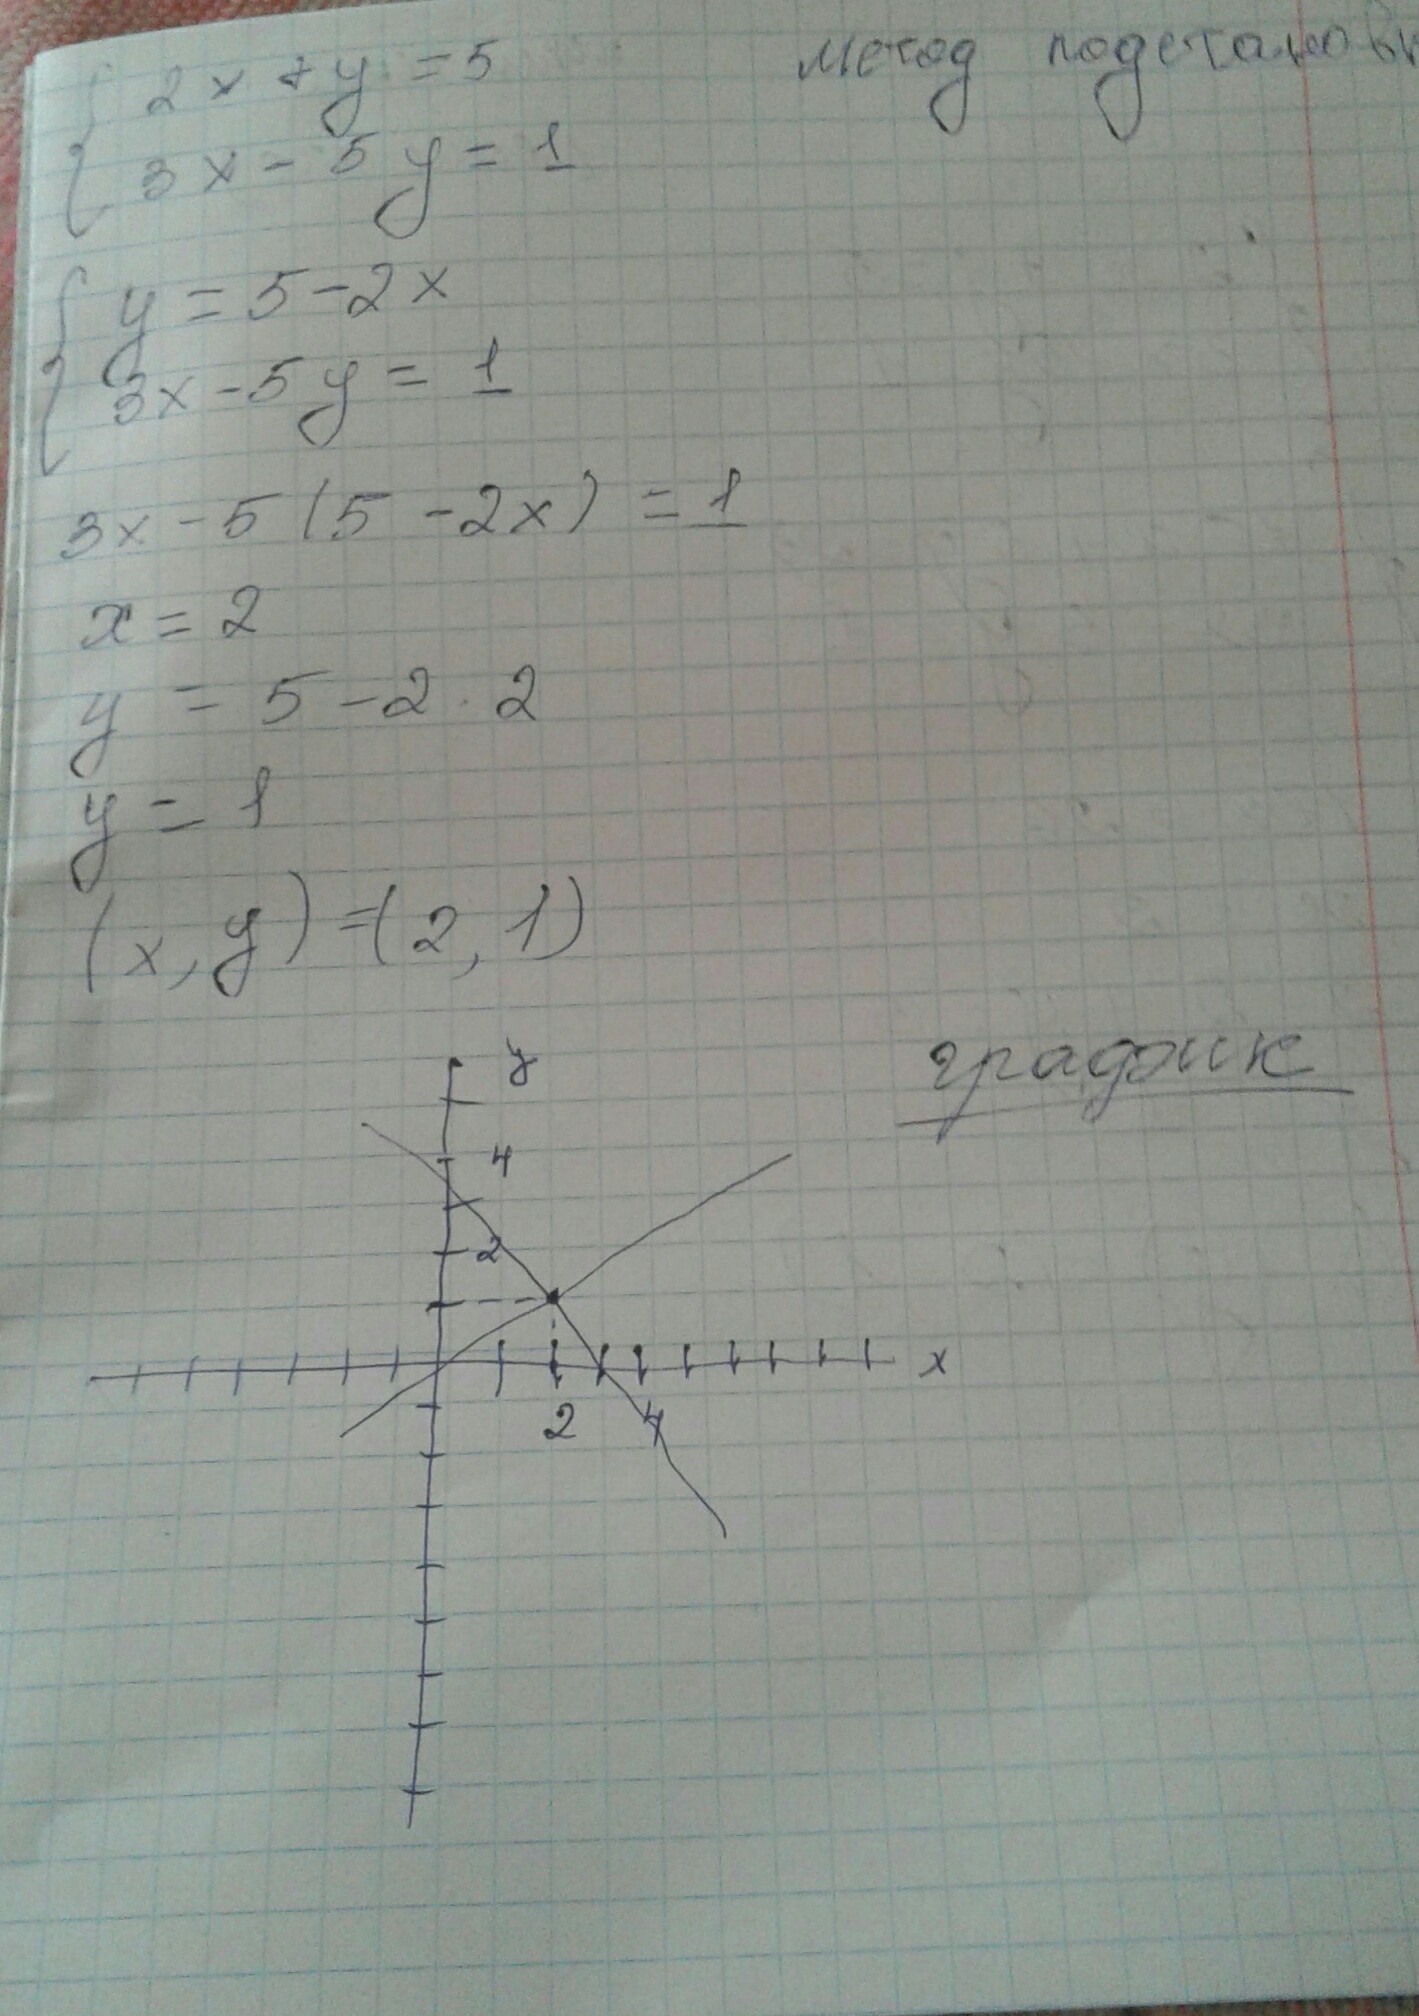 2x + y = 5
метод подстановк
3x - 5y = 1
y = 5 - 2x
3x - 5y = 1
3x - 5(5 - 2x) = 1
x = 2
y = 5 - 2 · 2
y = 1
(x, y) = (2, 1)
график
y
4
2
x
2 4